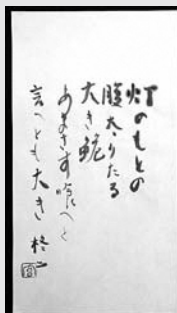 灯のもとの
腹太りたる
大き鮑
あまさず喰へと
言へども大きき
柊二